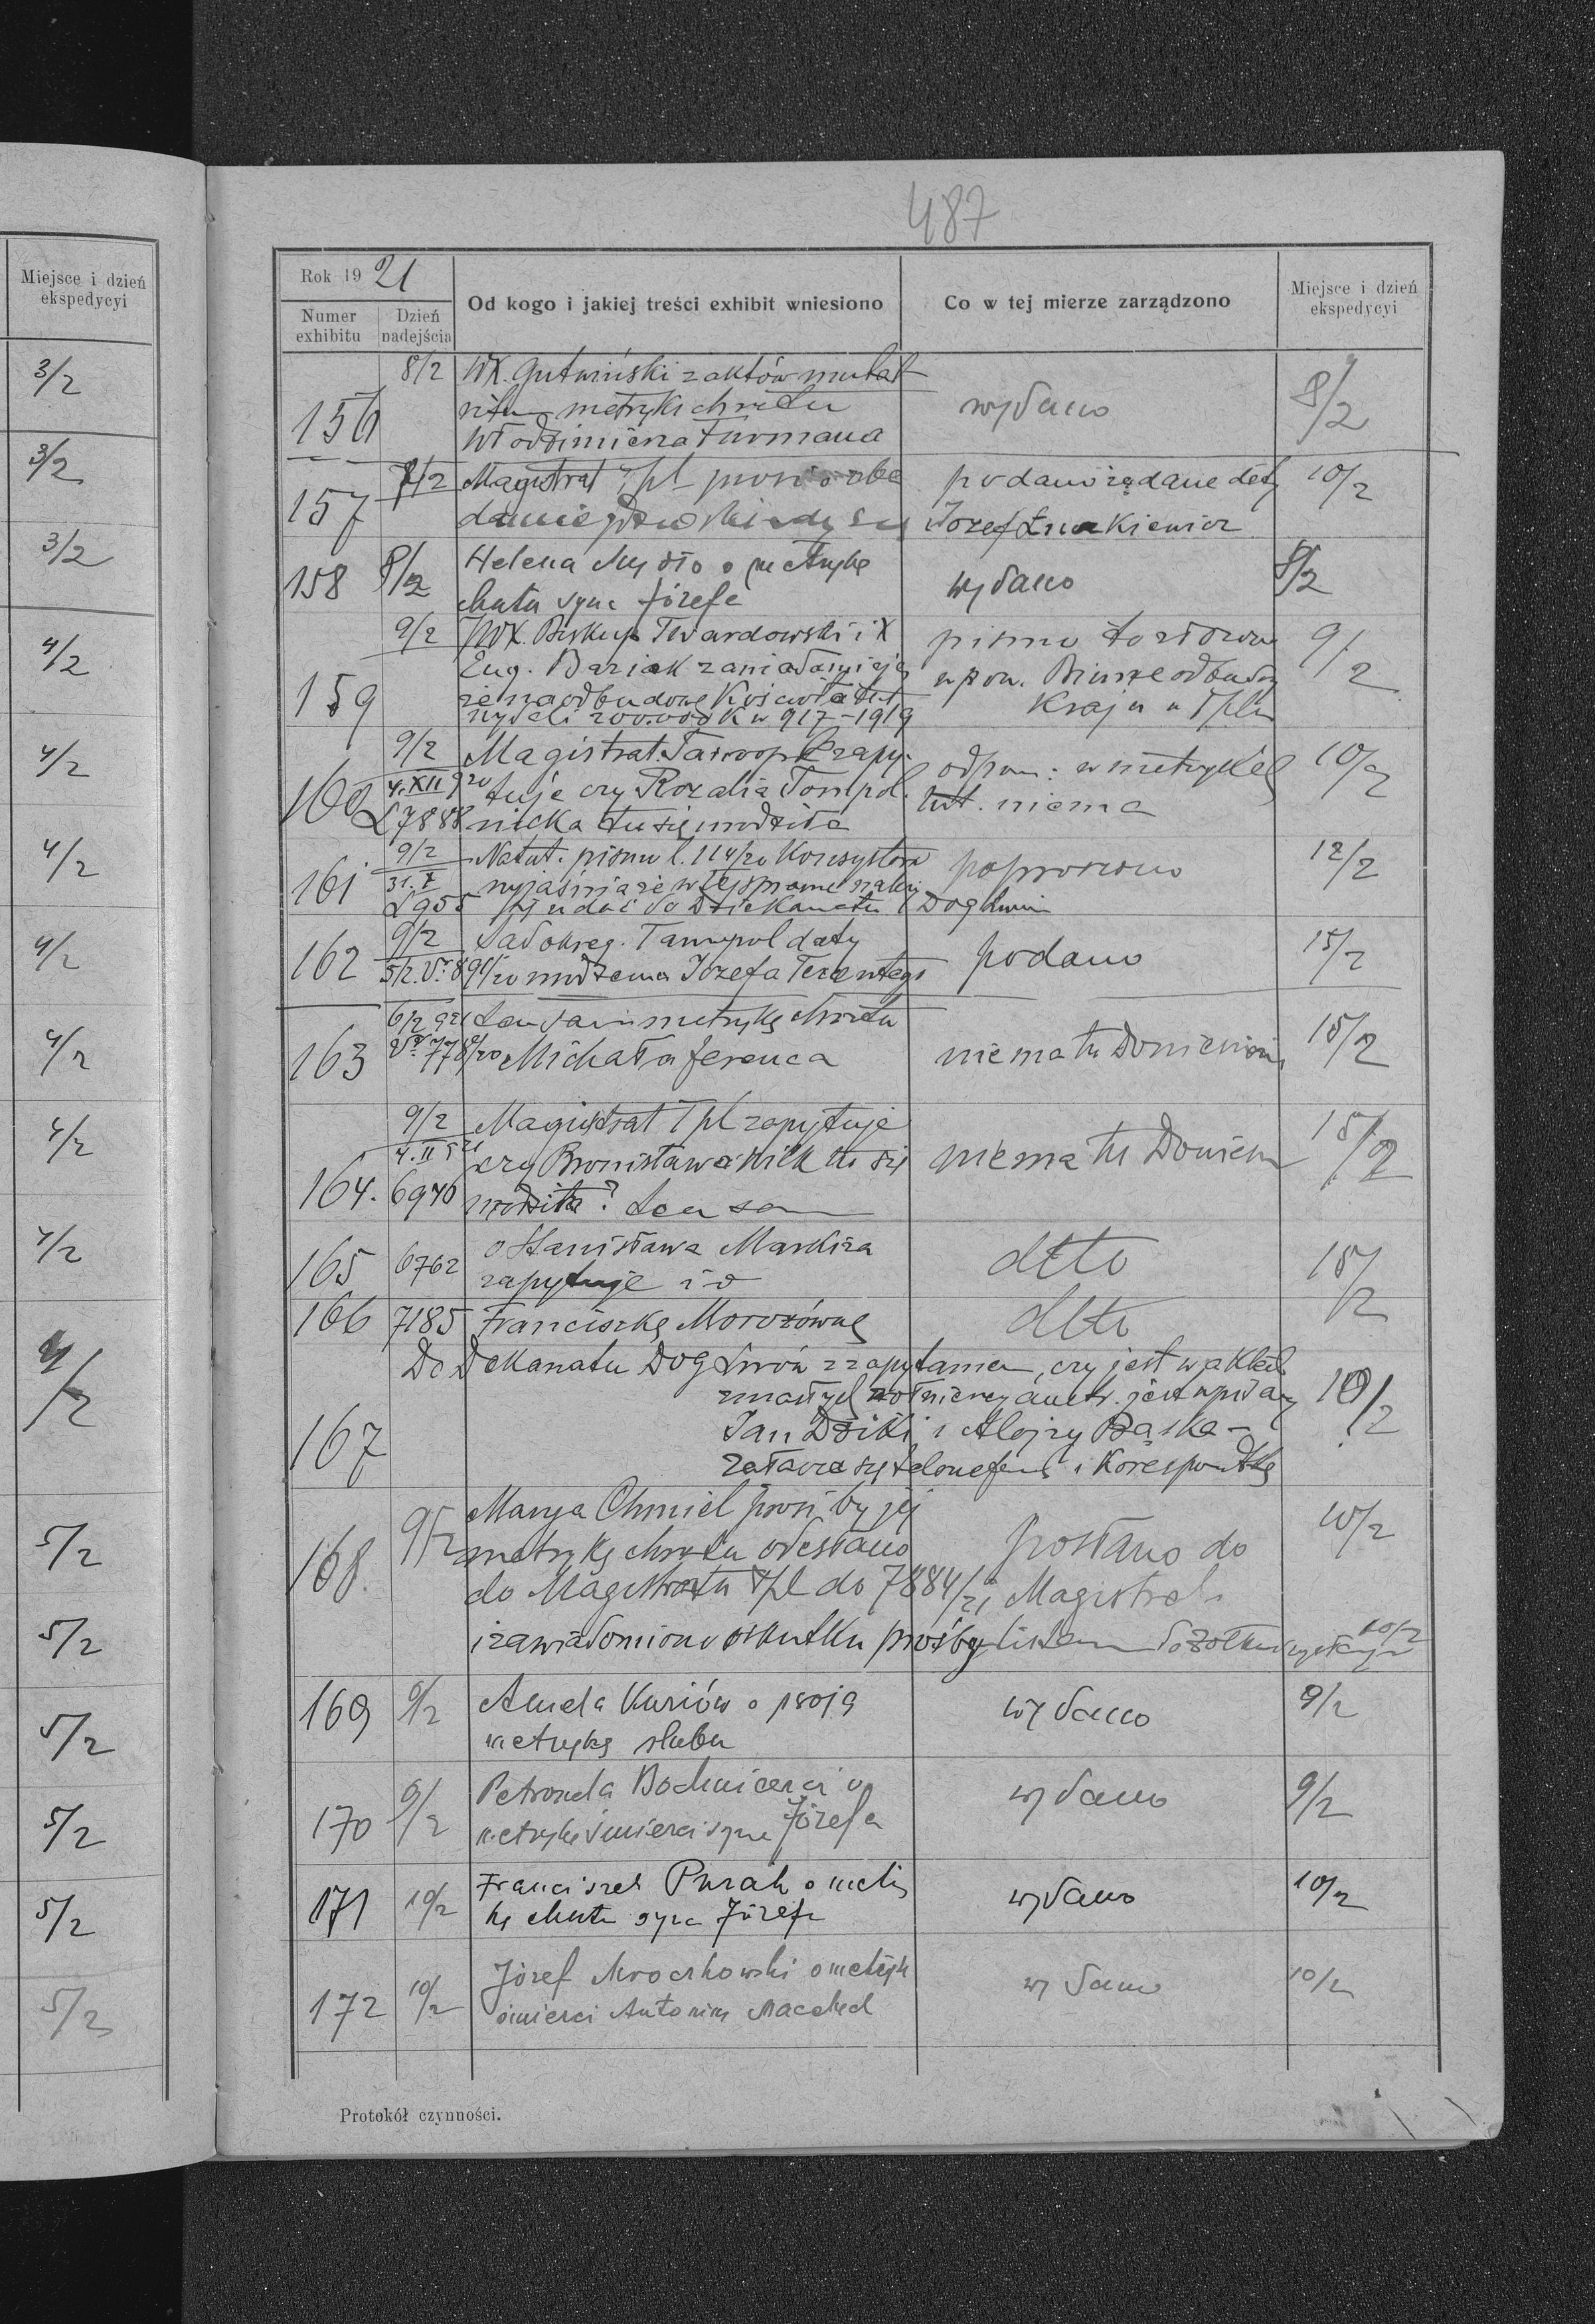 Miejsce i dzień
ekspedycyi
3/2
3/2
3/2
4/2
4/2
4/2
4/2
4/2
4/2
4/2
4/2
5/2
5/2
5/2
5/2
5/2
5/2
487
Rok 1921
Numer exhibitu
Dzień nadejścia
Od kogo i jakiej treści exhibit wniesiono
Co w tej mierze zarządzono
Miejsce i dzień ekspedycyi
156 8/2 WX. Gutwiński z aktów
metryki chrztu wydano 8/2
Włodzimierza Furmana
157 Magistrat Tpl prosi o podano żądane daty 10/2
Józef
158 8/2 Helena Mydło o metrykę wydano 8/2
syna Józefa
159 9/2 JWX. Biskup Twardowski i X pismo 9/2
Eug. Baziak zawiadamiają
że na odbudowę Kościoła tut kraju w Tplu
200.000 K w 917-1919
160 9/2 Magistrat Tarnopol zapy- odpow: w metrykach 10/2
4.XII 920 tuje czy Rozalia Tompol. tut. niema
L 7888 nicka tu się urodziła
161 9/2 Na tut. pismo l. 114/20 Konsystorz poproszono 12/2
31.X wyjaśnia że w tej sprawie należy
L 955 udać do Dziekanatu DOG Lwów
162 9/2 Sąd okręg. Tarnopol daty podano 15/2
5/2. Vr 891/20 urodzenia Józefa
163 6/2 921 Ten sam metrykę chrztu
Vr 778/20 Michała Ferenca niema tu Doniesiono 15/2
9/2 Magistrat Tpl zapytuje
4.II 921 czy Bronisława Wilk tu się niema tu Doniesiono 15/2
164. 6940 urodziła? Ten sam
165 6762 o Stanisława Markiza detto 15/2
zapytuje i o
166 7185 Franciszkę Morozównę detto
167 Do Dziekanatu DOG Lwów z zapytaniem, czy jest w aktach
zmarłych żołnierzy austr. jest wpisany 10/2
Jan Dziki i Alojzy Bąska -
załatwia się telonefem i Korespondtkę
168. 9/2 Marya Chmiel prosi by jej 10/2
metrykę chrztu odesłano posłano do
do Magistratu Tpl do 7884/21 Magistratu
i zawiadomiono o skutku prośby listem 10/2
169 9/2 Aniela Kuriów o swoją wydano 9/2
metrykę ślubu
170 9/2 Petronela o wydano 9/2
metrykę śmierci syna Józefa
171 10/2 Franciszek o metry wydano 10/2
kę syna Józefa
172 10/2 Józef Mroczkowski o metrykę wydano 10/2
śmierci Antoniny
Protokół czynności.